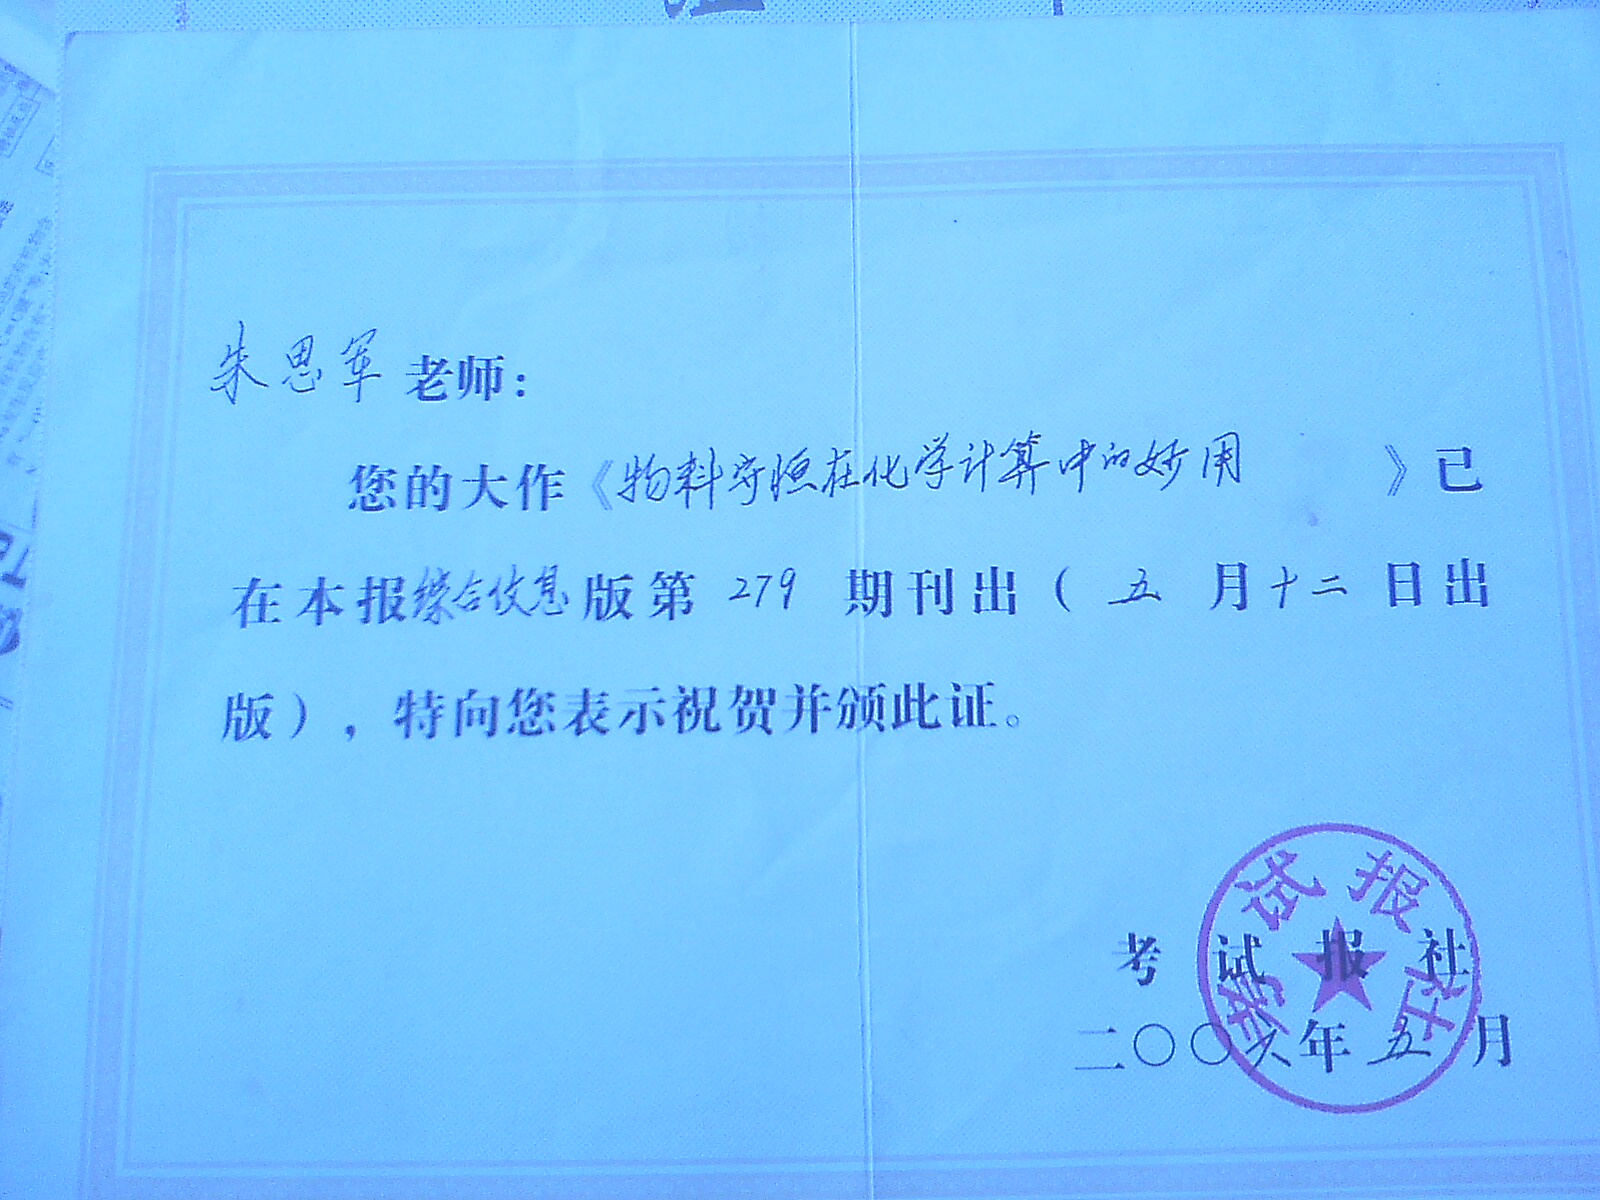 朱思军 老师：
您的大作《物料守恒在化学计算中的妙用》已
在本报综合信息版第 279 期刊出（五月十二日出
版），特向您表示祝贺并颁此证。
考试报社
考试报社
二〇〇六年五月